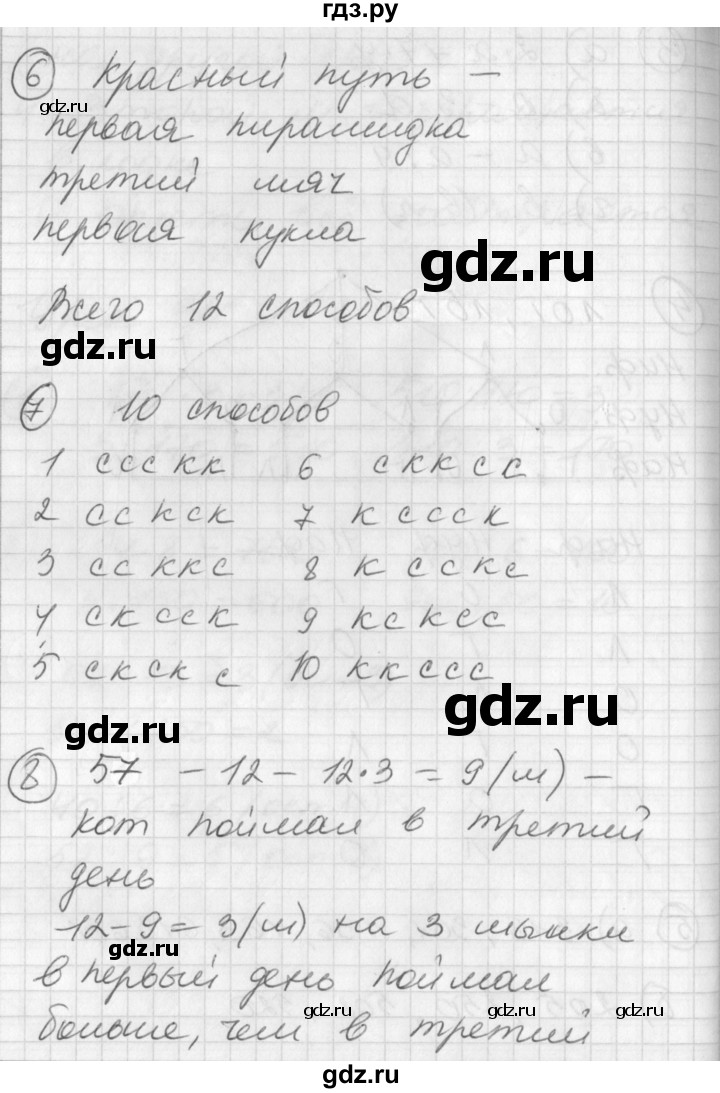 гдз.ру
6 красный путь —
gdz.ru
первая пирамидка
третий мяч
первая кукла
gdz.ru
Всего 12 способов
gdz.ru
7 10 способов
1 ссскк 6 скксс
2 сскск 7 кссск
3 ссккс 8 ксскс
4 сксск 9 ксксс
5 скскс 10 ккссс
gdz.ru
gdz.ru
8 57 - 12 - 12·3 = 9 (м) —
кот поймал в третий
день
12-9=3(м) на 3 мышки
gdz.ru
в первый день поймал
больше, чем в третий
gdz.ru